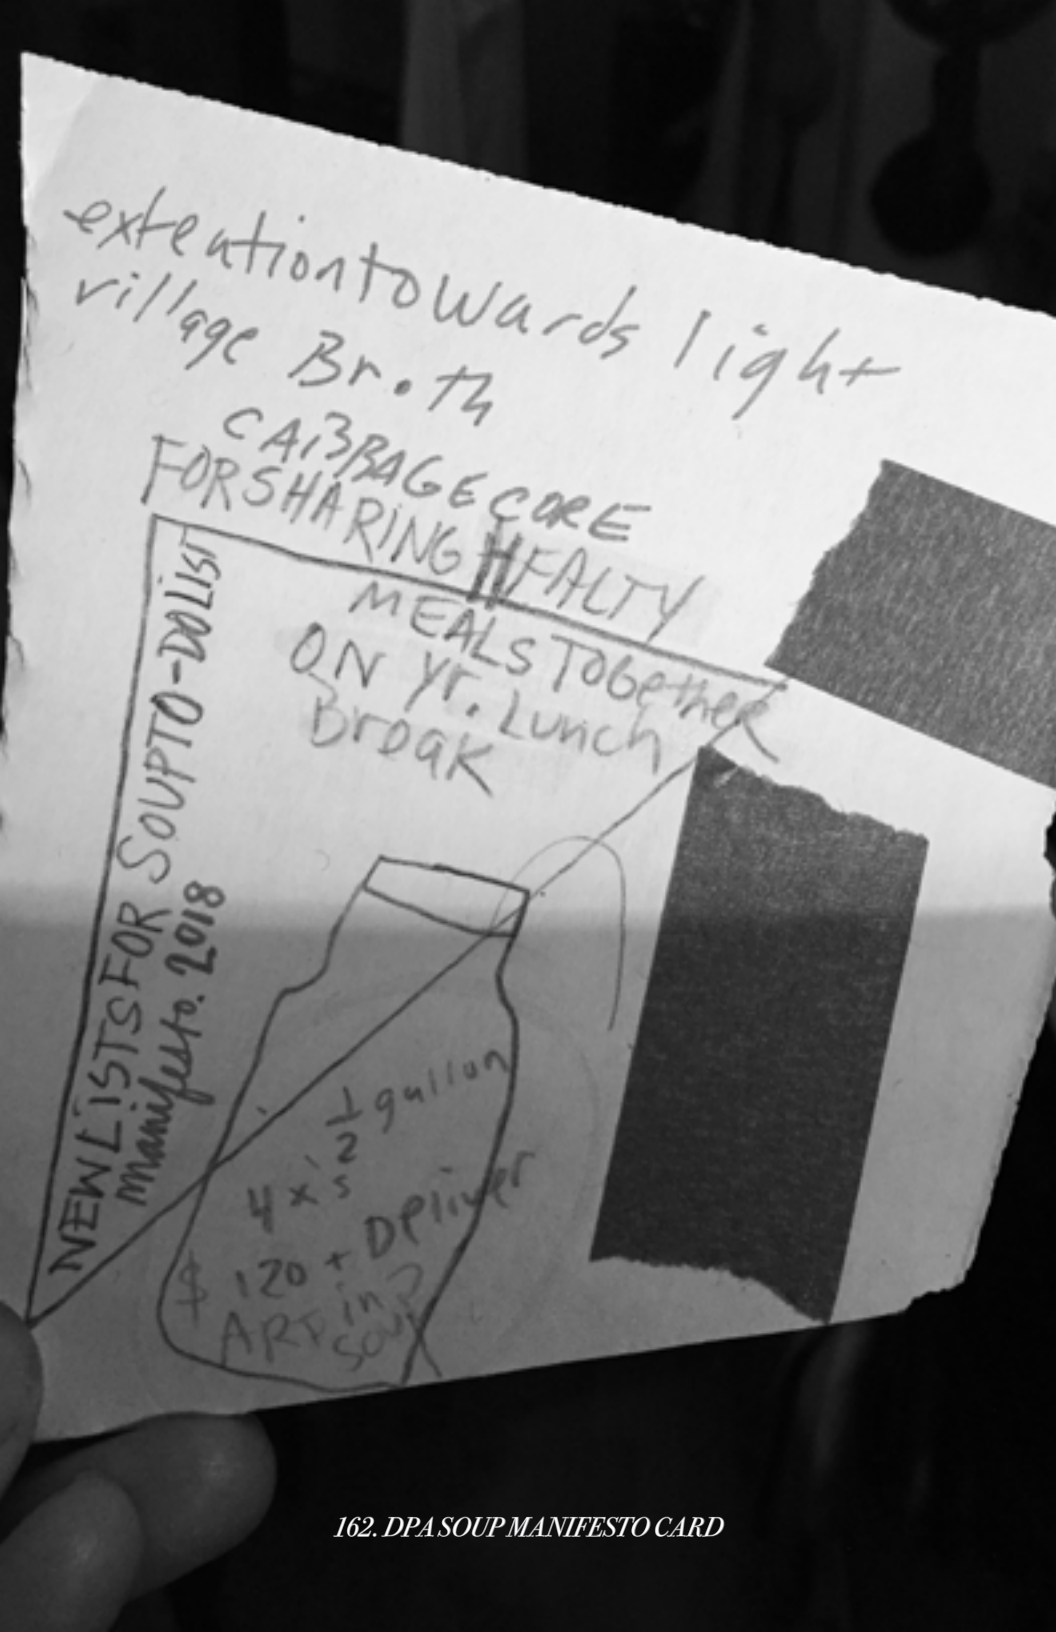 extentiontowards light
village Br.th
CABBAGE CORE
FOR SHARING HEALTY
MEALS TOGetheR
ON yr. Lunch
Broak
NEW LiSTS FOR SOUP TO-DO LiST
manifesto. 2018
1/2 gallon
4 x 's
$ 120 + DeliVer
ART in
SOUP
162. DPA SOUP MANIFESTO CARD